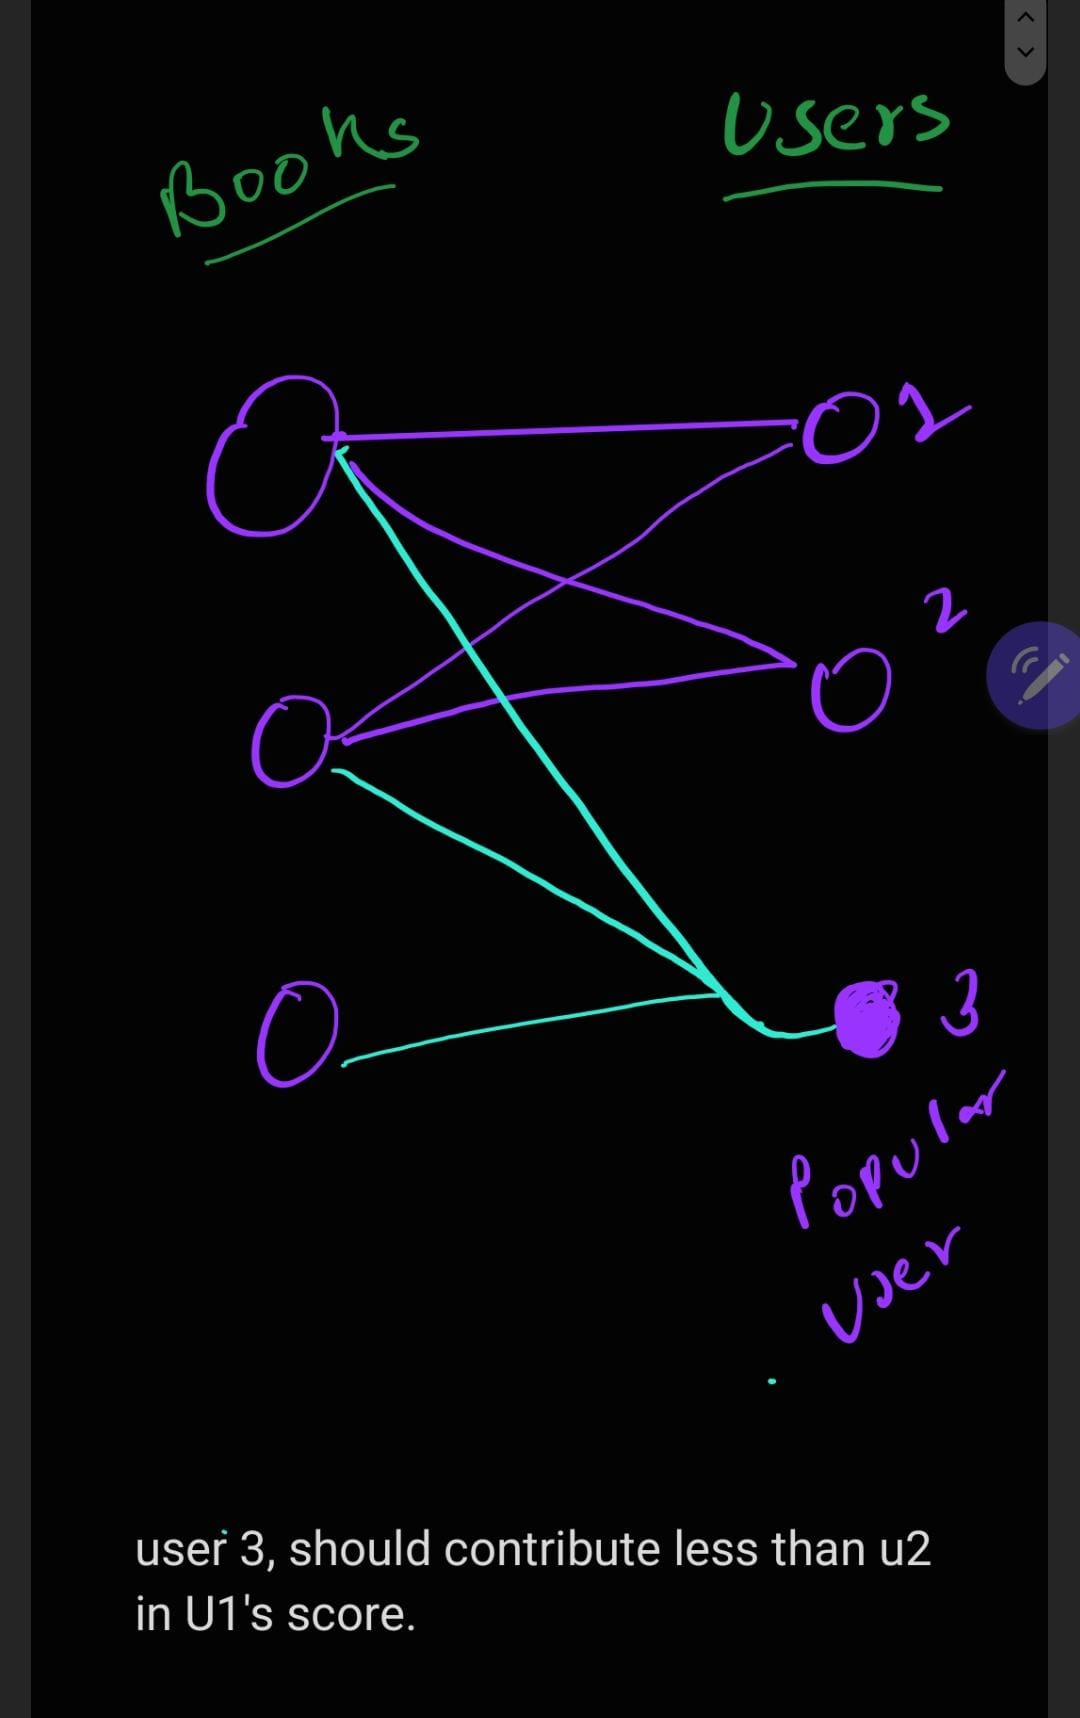 Books
Users
1
2
3
Popular
User
user 3, should contribute less than u2
in U1's score.